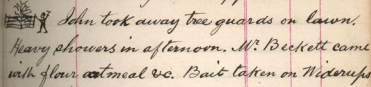 John took away tree guards on lawn.
Heavy showers in afternoon. Mr. Beckett came
with flour oatmeal &c. Bait taken on Widerups